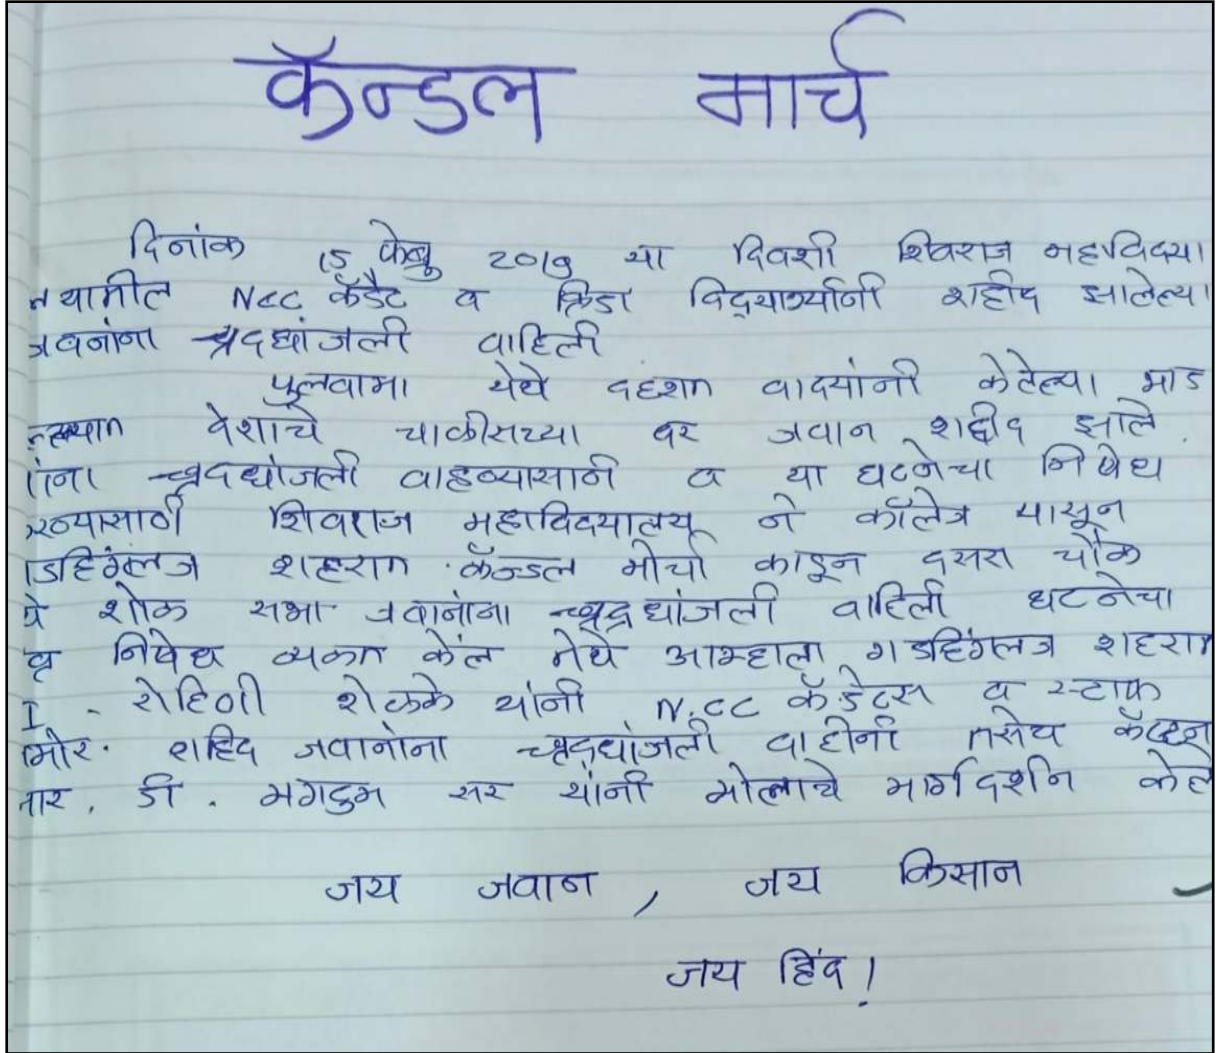 कॅन्डल मार्च
दिनांक 15 फेब्रु 2019 या दिवशी शिवराज महाविदया
लयातील NCC कॅडैट व क्रिडा विद्यार्थ्यांनी शहीद झालेल्या
जवानांना श्रद्धांजली वाहिली
पुलवामा येथे दहशत वादयांनी केलेल्या भाड
देशाचे चाळीसच्या वर जवान शहीद झाले.
श्रद्धांजली वाहण्यासाठी व या घटनेचा निषेध
करण्यासाठी शिवराज महाविदयालय ने कॉलेज पासून
डहिंग्लज शहरात कॅन्डल मोर्चा काढून दसरा चौक
शोक सभा जवानांना श्रद्धांजली वाहिली घटनेचा
निषेध व्यक्त केल तेथे आम्हाला गडहिंग्लज शहरात
I. रोहिणी शेळके यांनी N.CC कॅडेटस व स्टाफ
शहिद जवानांना श्रद्धांजली वाहीली तसेच कॅप्टन
आर. डी. मगदुम सर यांनी मोलाचे मार्गदर्शन केले
जय जवान, जय किसान
जय हिंद!